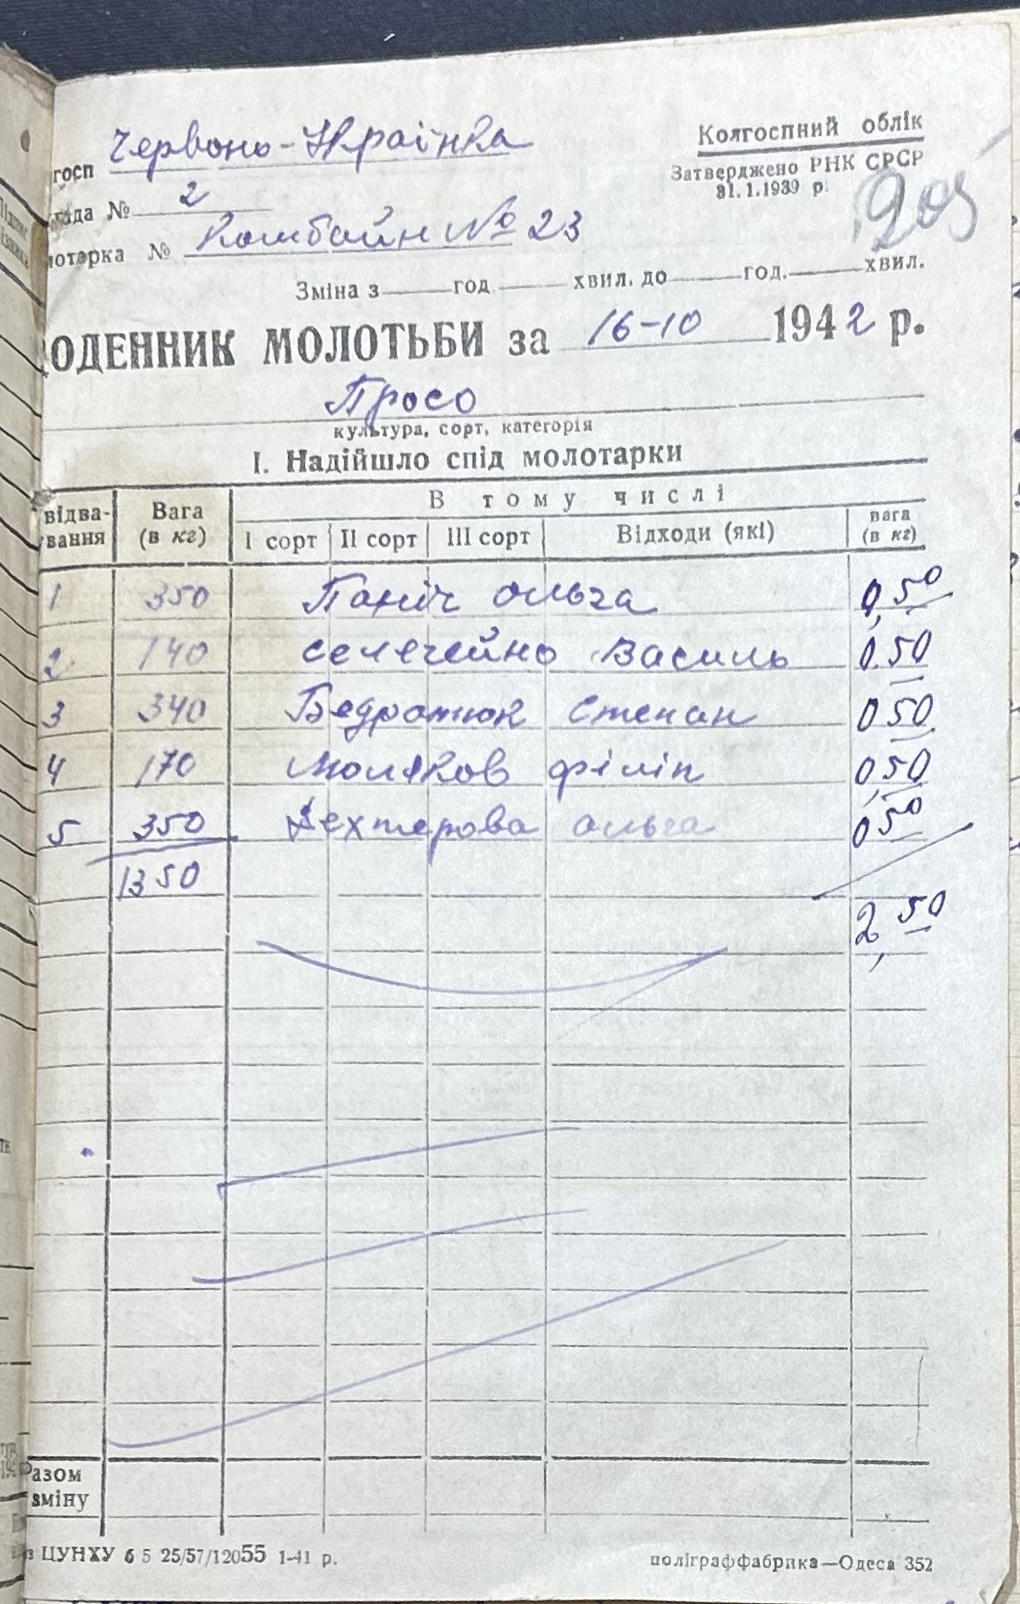 Червоно-Українка
госп
Колгоспний облік
Затверджено РНК СРСР
31.1.1939 р.
205
ада № 2
мотарка № Комбайн № 23
Зміна з год хвил. до год. хвил.
ОДЕННИК МОЛОТЬБИ за 16-10 1942 р.
Просо
культура, сорт, категорія
І. Надійшло спід молотарки
відва-вання Вага (в кг) В тому числі
І сорт ІІ сорт ІІІ сорт Відходи (які) вага (в кг)
1 350 Паніч Ольга 0,50
2 140 Селечейно Василь 0.50
3 340 Бедратюк Степан 0 50
4 170 Моляков Філіп 0,50
5 350 Дехтерова Ольга 0,50
1350
2,50
Разом
зміну
ЦУНХУ 6 5 25/57/12055 1-41 р.
поліграффабрика—Одеса 352